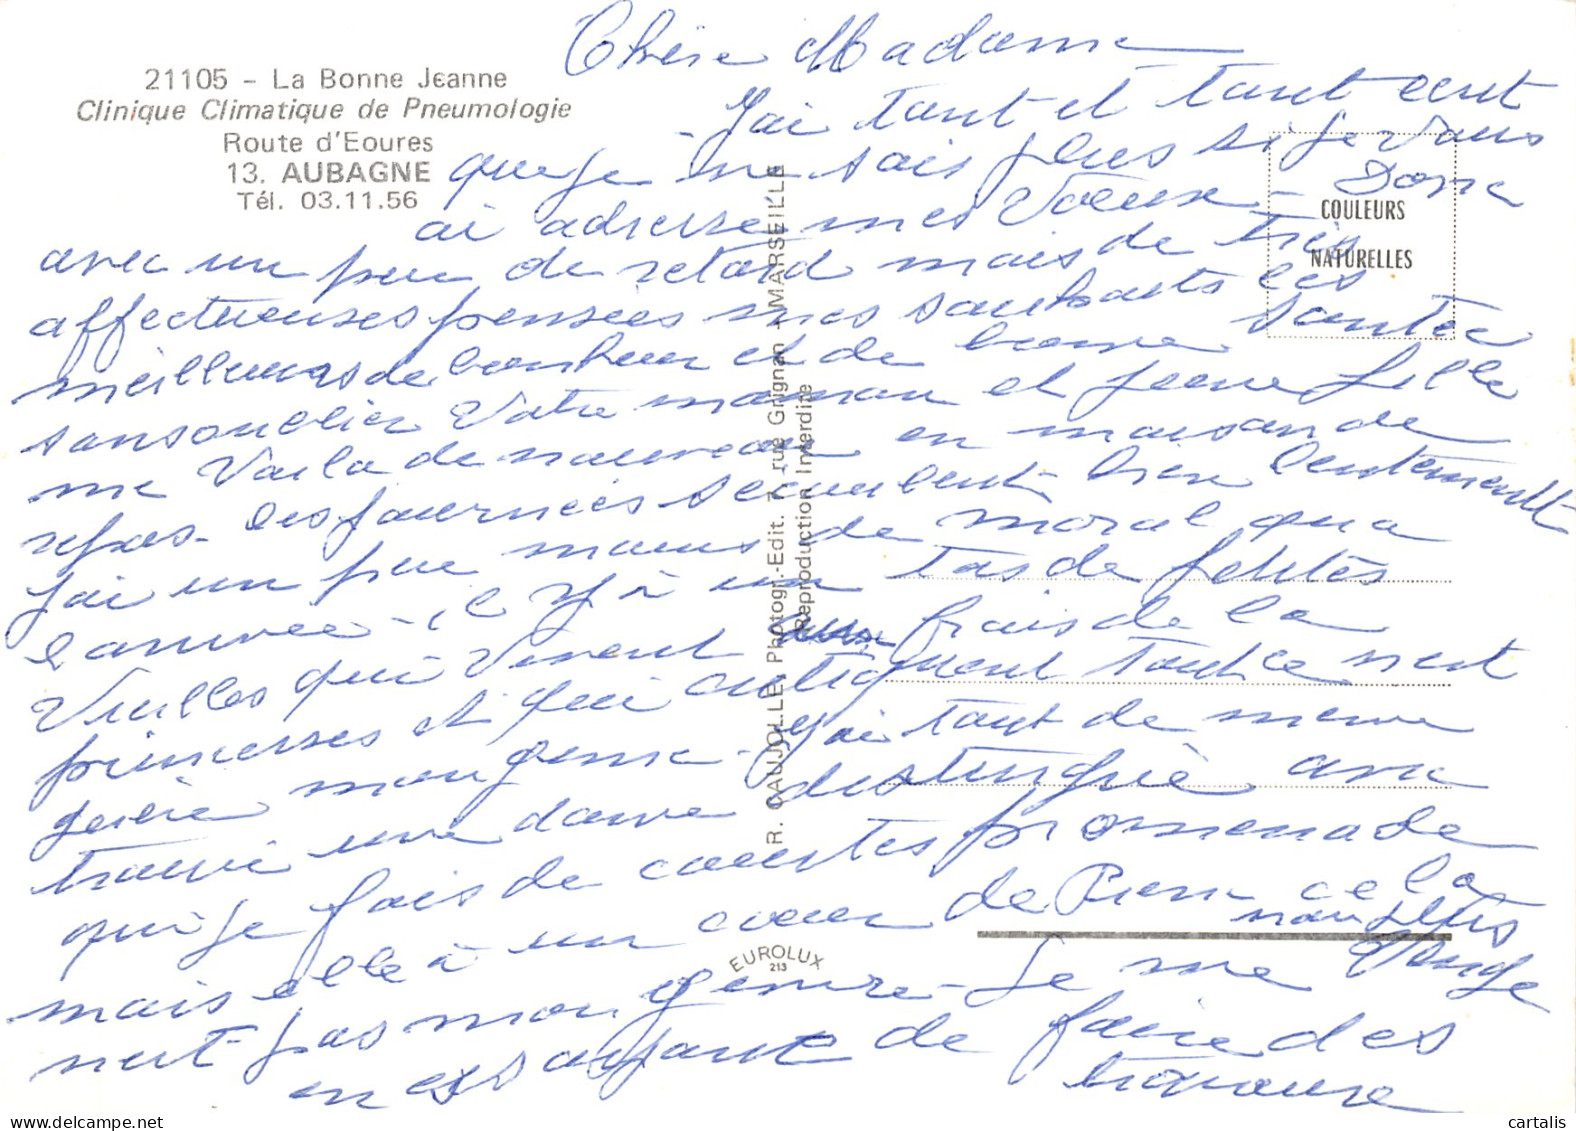 21105 - La Bonne Jeanne
Clinique Climatique de Pneumologie
Route d'Eoures
13. AUBAGNE
Tél. 03.11.56
COULEURS
NATURELLES
R. CAUJOLLE, Photogr.-Edit. 7, rue Grignan - MARSEILLE
Reproduction Interdite
EUROLUX
213
Chère Madame
- J'ai tant et tant ecrit
que je ne sais plus si je vous
ai adresse mes Voeux - Donc
avec un peu de retard mais de très
affectueuses pensées mes souhaits les
meilleurs de bonheur et de bonne santée
sans oublier Votre maman et jeune fille
me Voila de nouveau en maison de
repos - les journées s'ecoulent bien lentement
J'ai un peu moins de moral qu a
l'arrivée - il y à un tas de petites
Vieilles qui Vivent frais de la
princesses et qui critiquent tout ce nest
guère mon genre - J'ai tant de meme
trouvé une dame distinguée avec
qui je fais de courtes promenade
mais elle à un coeur de Pierre ce la
nest pas mon genre - Je me
en essayant de faire des
travaux
cartalis